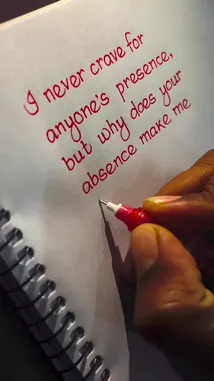 I never crave for
anyone's presence,
but why does your
absence make me